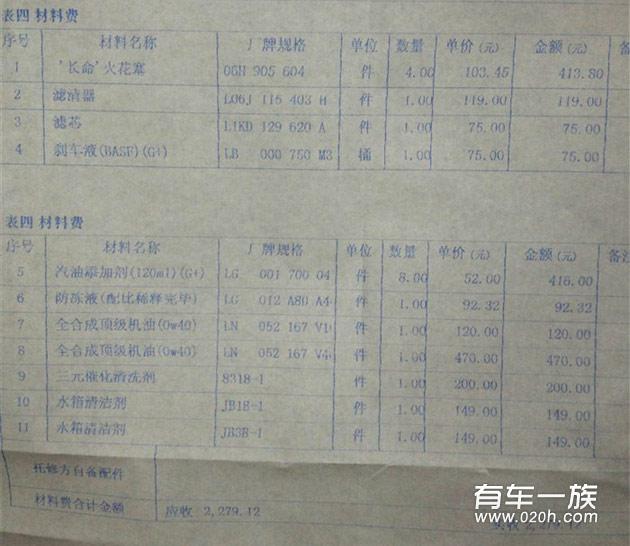 表四 材料费
序号 材料名称 厂牌规格 单位 数量 单价(元) 金额(元) 备
1 '长命'火花塞 06H 905 604 件 4.00 103.45 413.80
2 滤清器 L06J 115 403 H 件 1.00 119.00 119.00
3 滤芯 L1KD 129 620 A 件 1.00 75.00 75.00
4 刹车液(BASF)(G4) LB 000 750 M3 桶 1.00 75.00 75.00
表四 材料费
序号 材料名称 厂牌规格 单位 数量 单价(元) 金额(元) 备注
5 汽油添加剂(120ml)(G+) LG 001 700 04 件 8.00 52.00 416.00
6 防冻液(配比稀释完毕) LG 012 A80 A4 件 1.00 92.32 92.32
7 全合成顶级机油(0w40) LN 052 167 V1 件 1.00 120.00 120.00
8 全合成顶级机油(0w40) LN 052 167 V4 件 1.00 470.00 470.00
9 三元催化清洗剂 8318-1 件 1.00 200.00 200.00
10 水箱清洁剂 件 1.00 149.00 149.00
11 水箱清洁剂 件 1.00 149.00 149.00
托修方自备配件
材料费合计金额 应收 2,279.12
实收 2,279.12
有车一族
www.020h.com